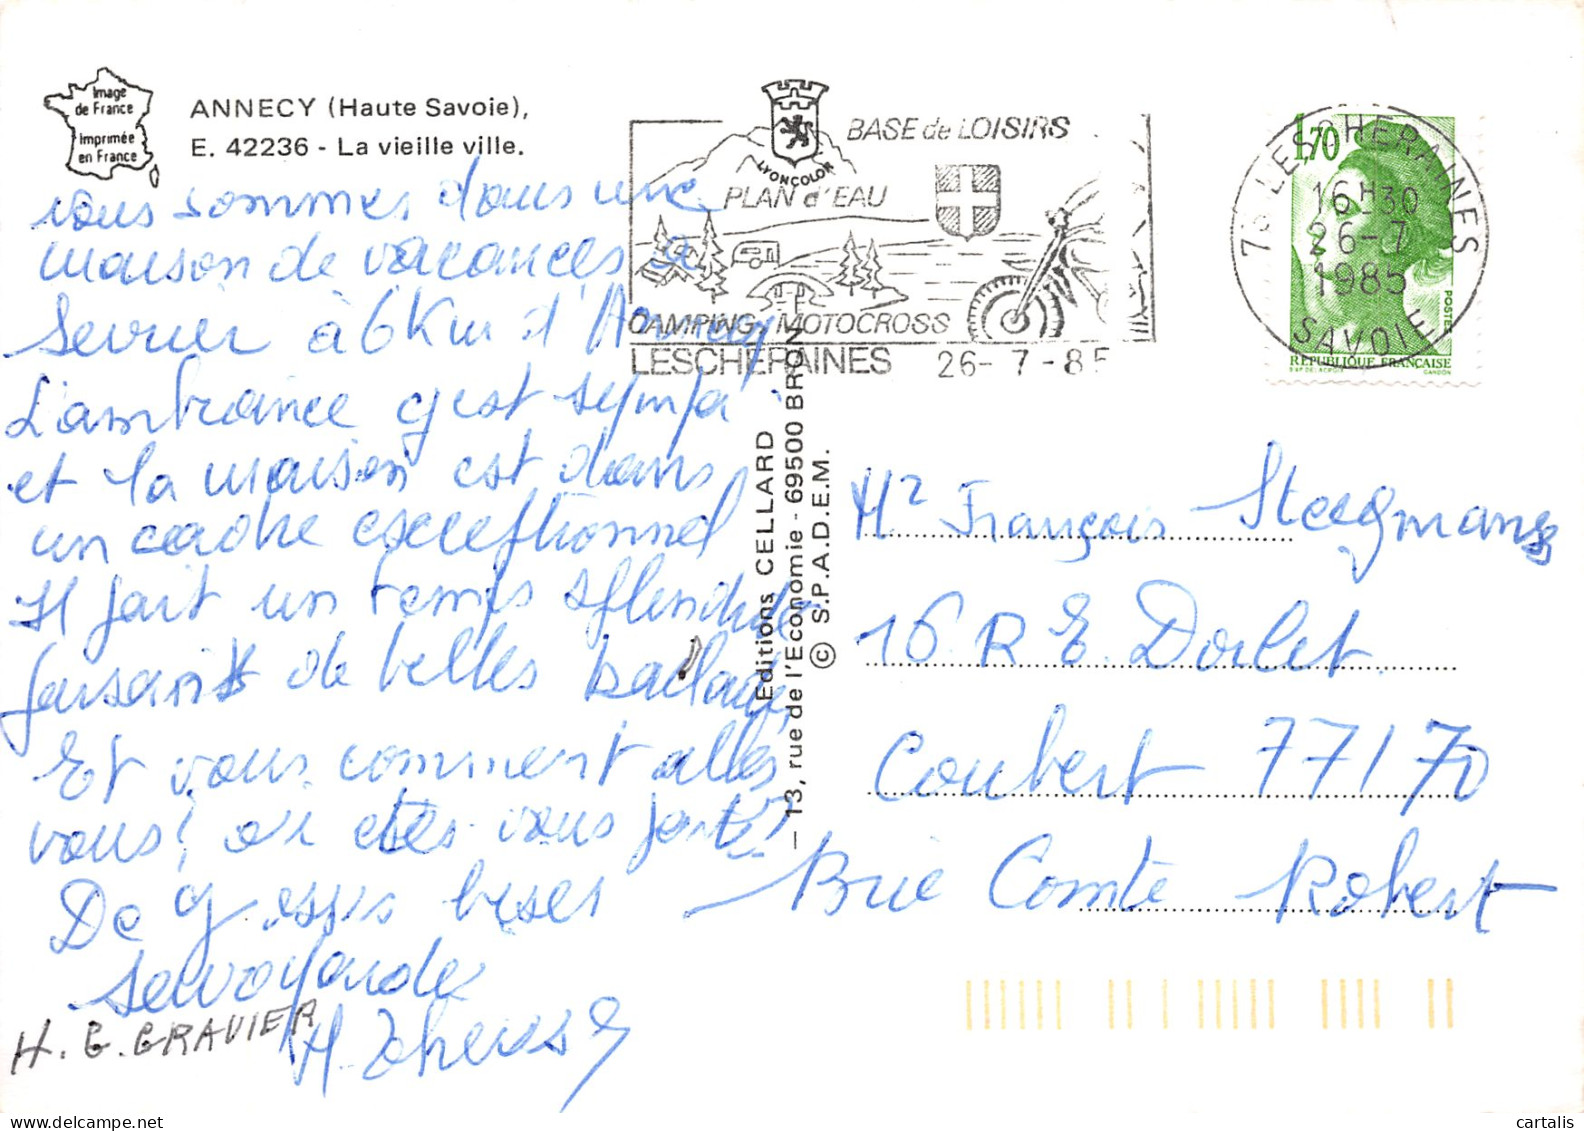 Image
de France
Imprimée
en France
ANNECY (Haute Savoie),
E. 42236 - La vieille ville.
nous sommes dans une
maison de vacances à
Sevrier à 6 Km d'Annecy
L'ambiance y est sympa
et la maison est dans
un cadre exceptionnel
Il fait un temps splendide
faisant de belles ballades
Et vous comment allez
vous? où etes vous partis?
De grosses bises
savoyardes
M. Therese
H. G. GRAVIER
LYONCOLOR
BASE de LOISIRS
PLAN d'EAU
CAMPING MOTOCROSS
LESCHERAINES 26-7-85
73 LESCHERAINES
16H30
26-7
1985
SAVOIE
1,70
POSTES
REPUBLIQUE FRANÇAISE
GANDON
Editions CELLARD
— 13, rue de l'Economie - 69500 BRON
© S.P.A.D.E.M.
Mr François Steegmans
16 R E. Dolet
Coubert 77170
Brie Comte Robert
cartalis